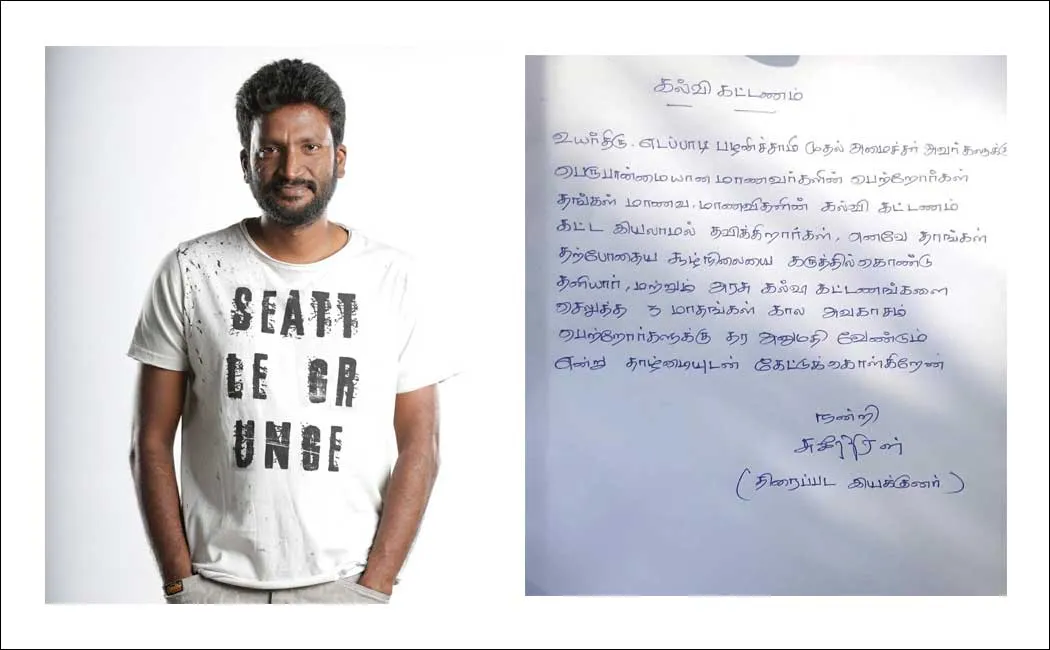 SEATT
LE GR
UNGE
கல்வி கட்டணம்
உயர்திரு. எடப்பாடி பழனிச்சாமி முதல் அமைச்சர் அவர்களுக்கு
பெரும்பான்மையான மாணவர்களின் பெற்றோர்கள்
தங்கள் மாணவ, மாணவிகளின் கல்வி கட்டணம்
கட்ட இயலாமல் தவிக்கிறார்கள், எனவே தாங்கள்
தற்போதைய சூழ்நிலையை கருத்தில்கொண்டு
தனியார், மற்றும் அரசு கல்வி கட்டணங்களை
செலுத்த 3 மாதங்கள் கால அவகாசம்
பெற்றோர்களுக்கு தர அனுமதி வேண்டும்
என்று தாழ்மையுடன் கேட்டுக்கொள்கிறேன்
நன்றி
சுசீந்திரன்
(திரைப்பட இயக்குனர்)